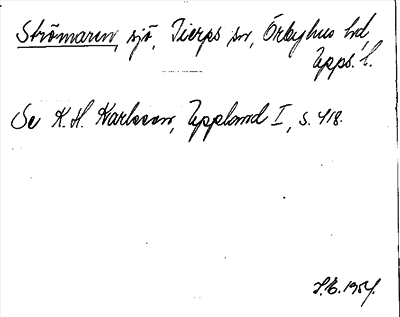 Strömaren, sjö, Tierps sn, Örbyhus hd,
Upps. l.
Se K.H. Karlsson, Uppland I, s. 418.
S.E. 1954.